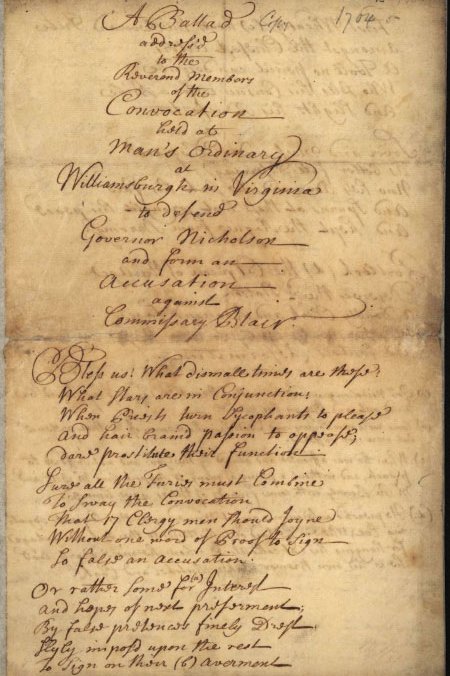 A Ballad Copy 1704
address'd
to the
Reverend Members
of the
Convocation
held at
Man's Ordinary
at
Williamsburgh in Virginia
to defend
Governor Nicholson
and form an
Accusation
against
Commissary Blair.
Bless us: What dismall times are these;
What Stars are in Conjunction;
When Priests turn Sycophants to please
And hair braind passion to appease;
dare prostitute their function
Sure all the Furies must Combine
To Sway the Convocation
That 17 Clergy men should Joyne
Without one word of Proof to Sign
So false an Accusation.
Or rather Some for (a) Interest
and hopes of next preferment;
By false pretences finely Drest
Slyly imposd upon the rest
To Sign on their (b) Averment